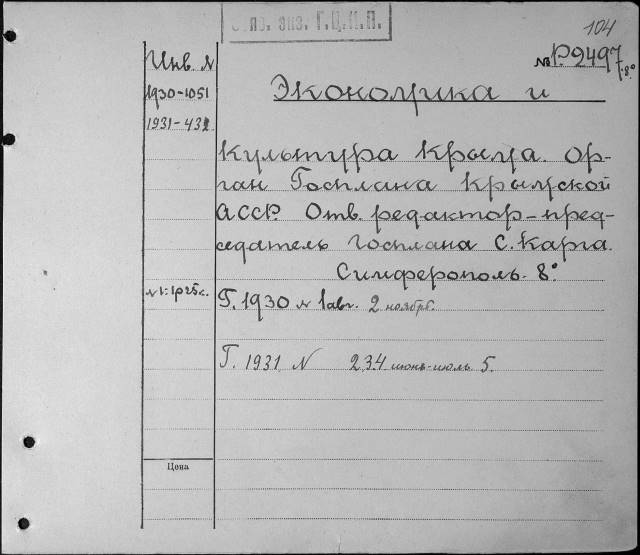 104
экз. Г.Ц.К.П.
№ Р.2497
8°
Инв. №
1930-1051
1931-431
Экономика и
культура Крыма. Ор-
ган Госплана Крымской
АССР. Отв. редактор-пред-
седатель Госплана С. Карга.
Симферополь. 8°
№1:1р25к.
Г. 1930 № 1авг. 2 ноябрь.
Г. 1931 N 234 июнь-июль 5.
Цена